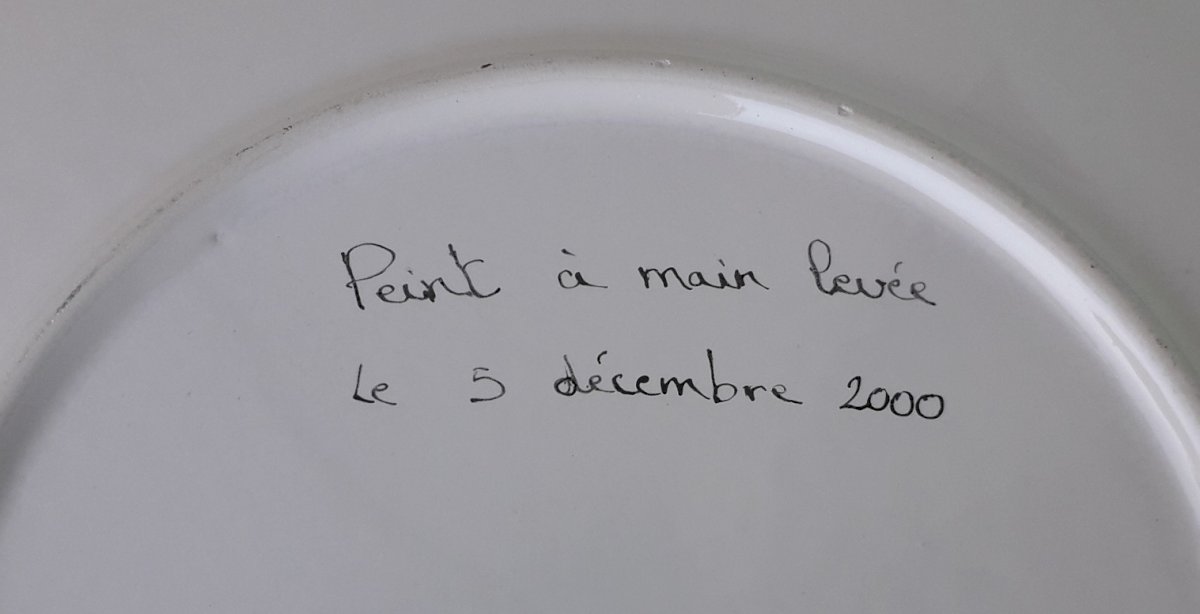 Peint à main levée
Le 5 décembre 2000